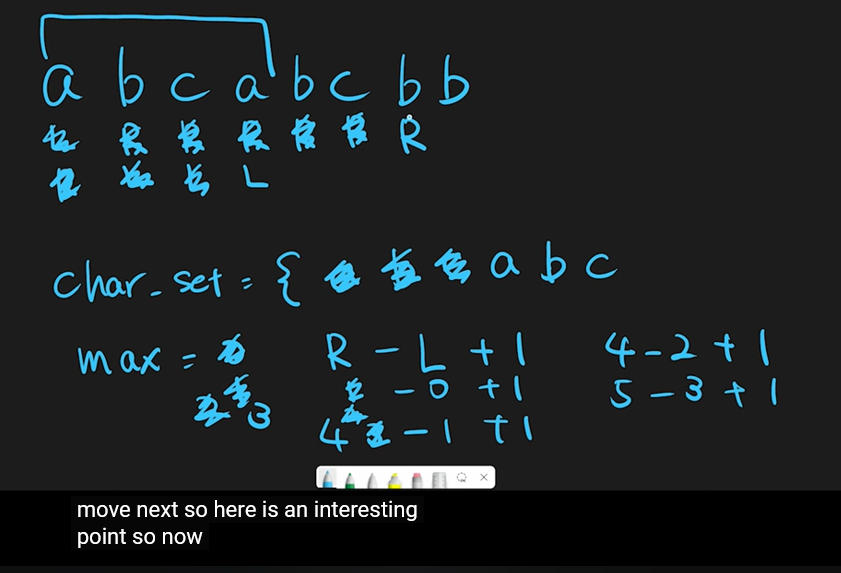 a b c a b c b b
R
L
char_set = { a b c
max = 3
R - L + 1 4 - 2 + 1
- 0 + 1 5 - 3 + 1
4 - 1 + 1
move next so here is an interesting
point so now